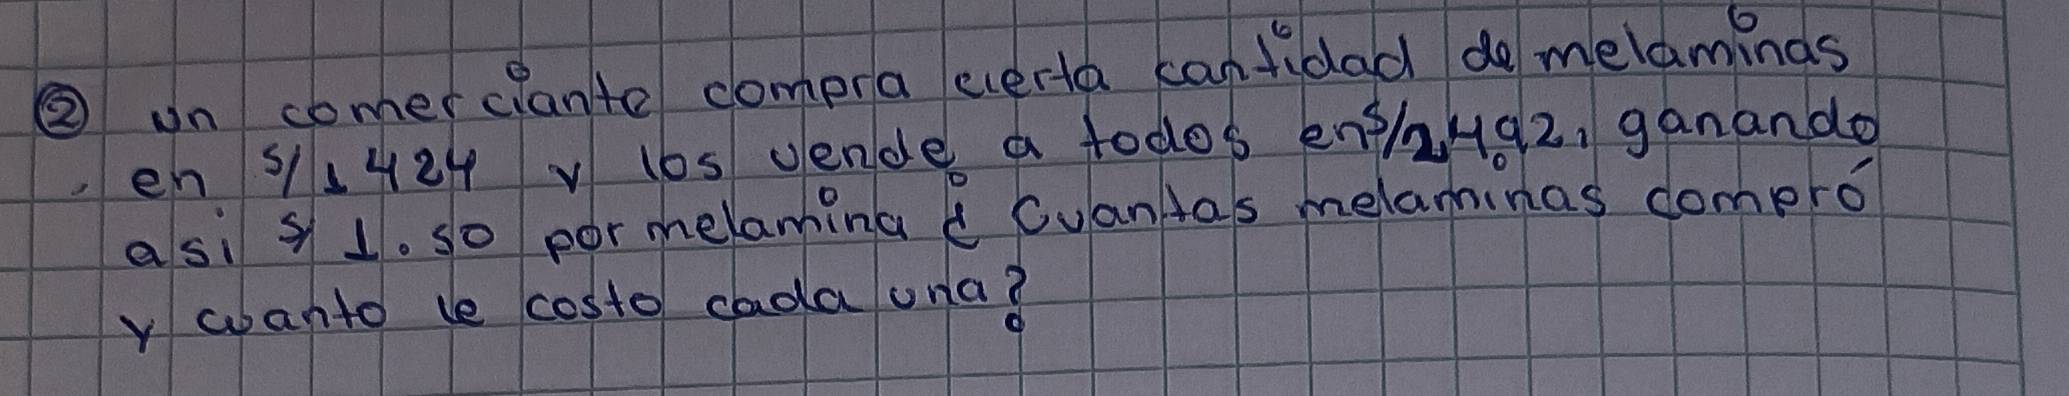 ② un comerciante compra cierta cantidad de melaminas
en S/1424 y los vende a todos en S/2,492, ganando
asi S/ 1.50 por melamina ¿ Cuantas melaminas compró
y cuanto le costo cada una?